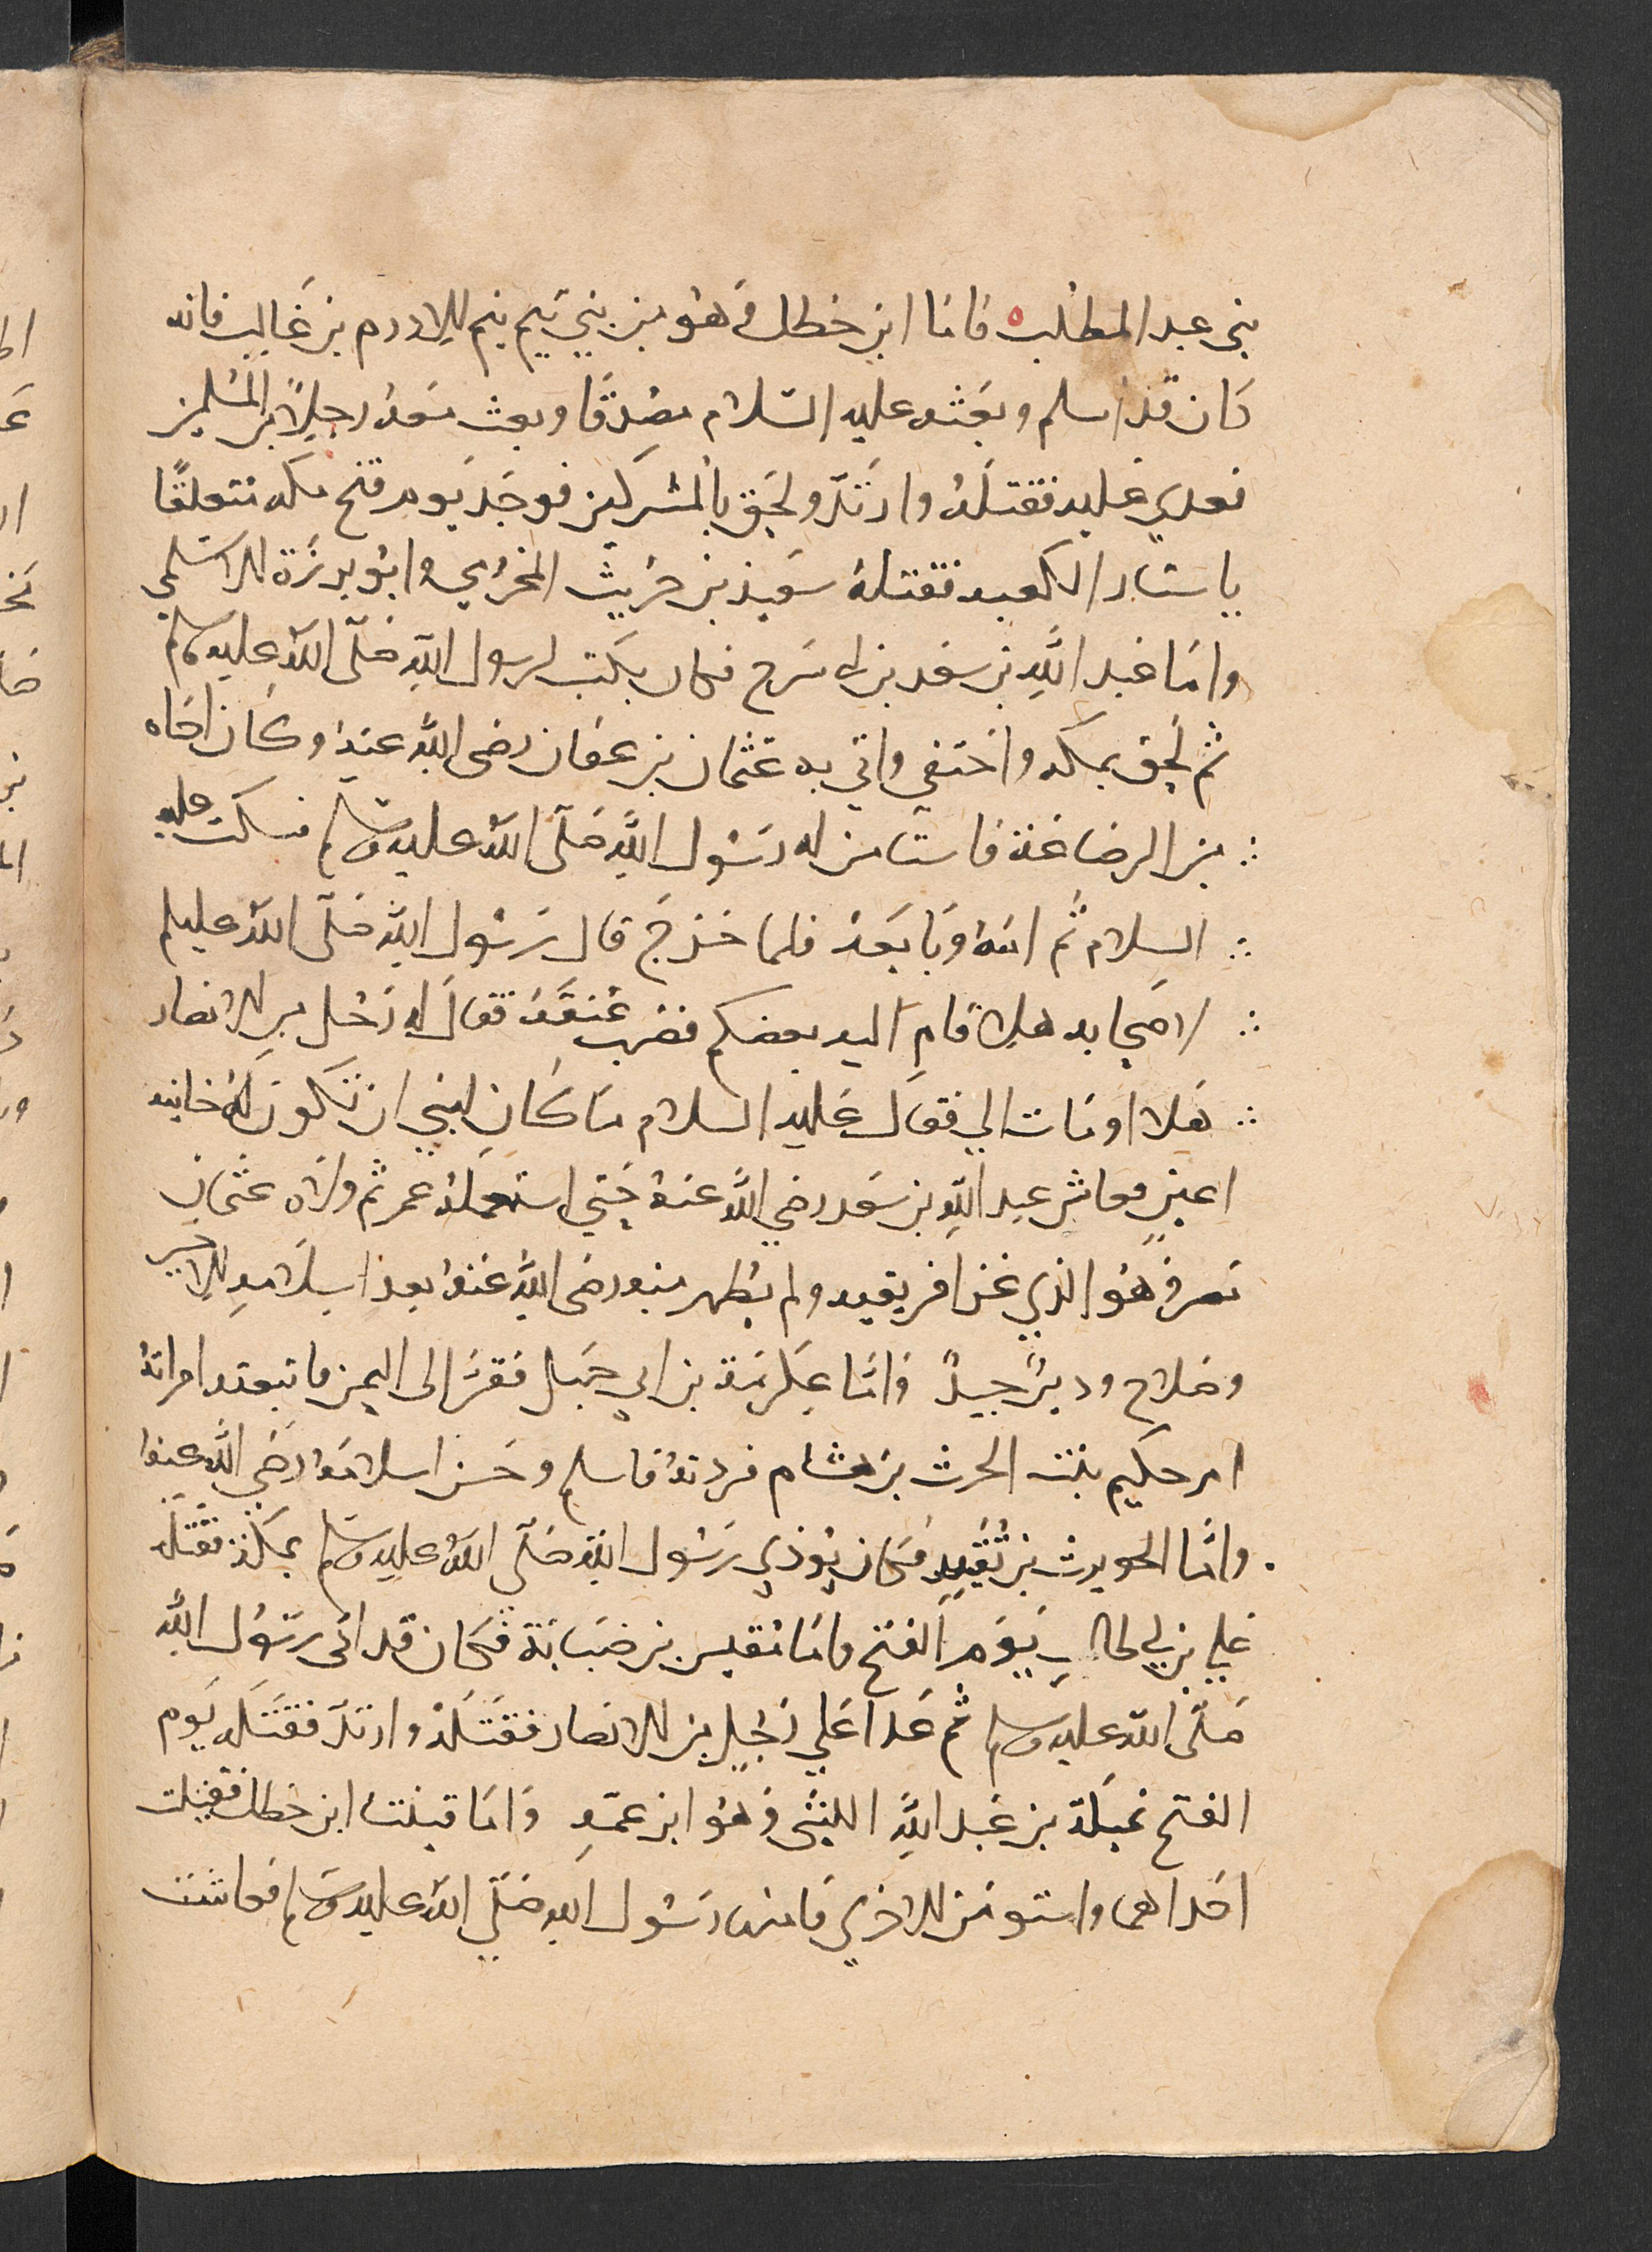 بني عبد المطلب فاما ابن خطل فهو من بني تيم بنم الادرم بن غالب فانه
كان قد اسلم وبعثه عليه السلام مصدقا وبعث معه رجلا من المسلمين
فعدي عليه فقتله وارتد ولحق بالمشركين فوجد يوم فتح مكه متعلقا
باستار الكعبه فقتله سعيد بن حريث المخزومي وابو برزة الاسلمي
واما عبد الله بن سعد بن ابي سرح فكان يكتب لرسول الله صلى الله عليه وسلم
ثم لحق بمكه واختفي واتي به عثمان بن عفان رضى الله عنه وكان اخاه
من الرضاعة فاستامن له رسول الله صلى الله عليه وسلم فسكت عليه
السلام ثم امنه وبايعه فلما خرج قال رسول الله صلى الله عليه وسلم
لاصحابه هلا قام اليه بعضكم فضرب عنقه فقال له رجل من الانصار
هلا اومات الي فقال عليه السلام ما كان لنبي ان تكون له خاينه
اعين فعاش عبد الله بن سعد رضي الله عنه حتي استعمله عمر ثم ولاه عثمان
مصر وهو الذي غزا افريقيه ولم يظهر منه رضى الله عنه بعد اسلامه الا خير
وصلاح ودين جيد واما عكرمة بن ابي جهل ففر الى اليمن فاتبعته امراته
ام حكيم بنت الحرث بن هشام فردته فاسلم وحسن اسلامه رضي الله عنه
واما الحويرث بن نقيد فكان يوذي رسول الله صلى الله عليه وسلم بمكة فقتله
علي بن ابي طالب يوم الفتح واما مقيس بن ضبابة فكان قد اتى رسول الله
صلى الله عليه وسلم ثم عدا علي رجل من الانصار فقتله وارتد فقتله يوم
الفتح نميلة بن عبد الله الليثى وهو ابن عمه واما قينتا ابن خطل فقتلت
احداهما واستومن للاخري فامنها رسول الله صلى الله عليه وسلم فعاشت